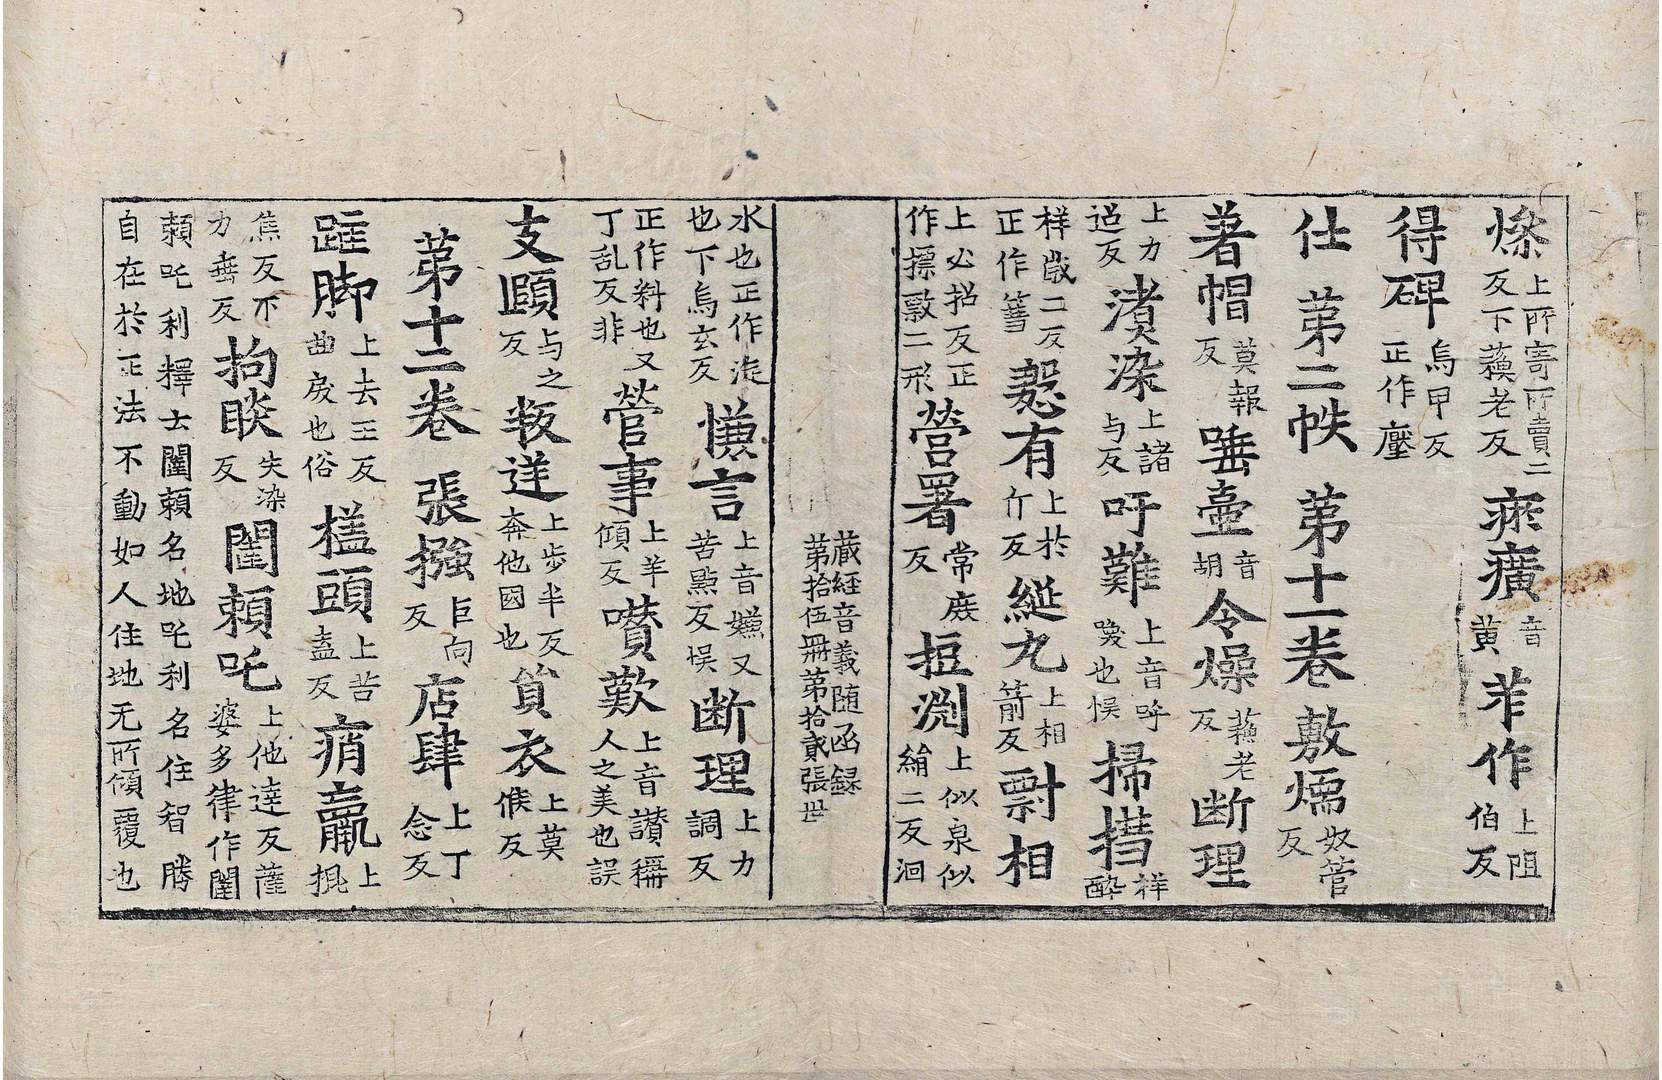 燥上所寄所賣二反下蘓老反瘀癀音黄苲作上阻伯反
得碑烏甲反正作壓
仕第二帙第十一卷敷煗奴管反
著帽莫報反唾壷音胡令燥蘓老反断理
上力過反漬染上諸与反吁難上音呼喚也悮掃撍祥醉
样歳二反正作篲慇有上於巾反綖丸上相箭反剽相
上必招反正作摽敺二形營署常庻反拒渊上似泉似絹二反洄
藏經音義随函録
第拾伍冊第拾貳張世
水也正作漩也下烏玄反慊言上音嫌又苦點反悮断理上力調反
正作料也又丁乱反非管事上羊傾反嚽歎上音讃稱人之美也誤
支頤与之反叛逹上步半反奔他國也貿衣上莫候反
第十二卷張摾巨向反店肆上丁念反
䟫脚上去王反曲戾也俗榼頭上苦盍反痟羸上
焦反下力垂反拘睒失染反闍頼吒上他達反薩婆多律作闍
頼吒利釋士闥頼名地吒利名住智勝
自在於正法不動如人住地无所傾覆也